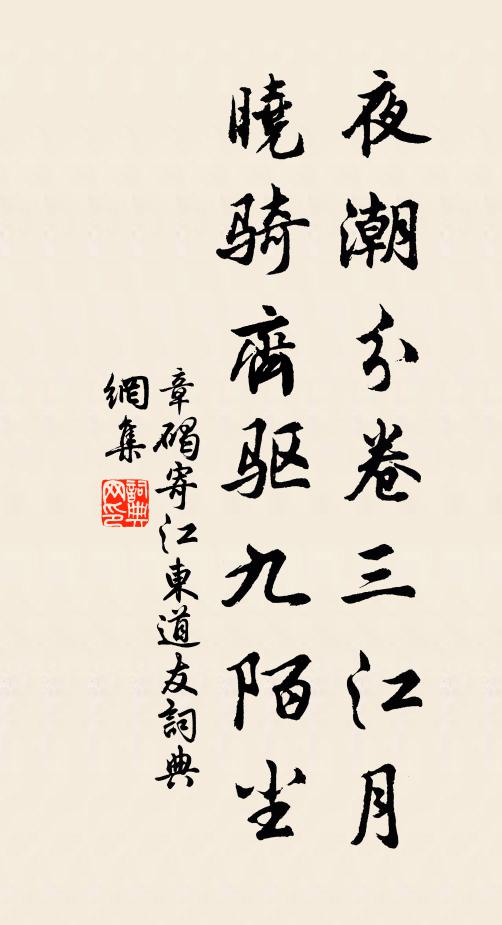 夜潮分卷三江月
曉骑齊驱九陌尘
章碣寄江東道友詞典
網集
詞典
网印